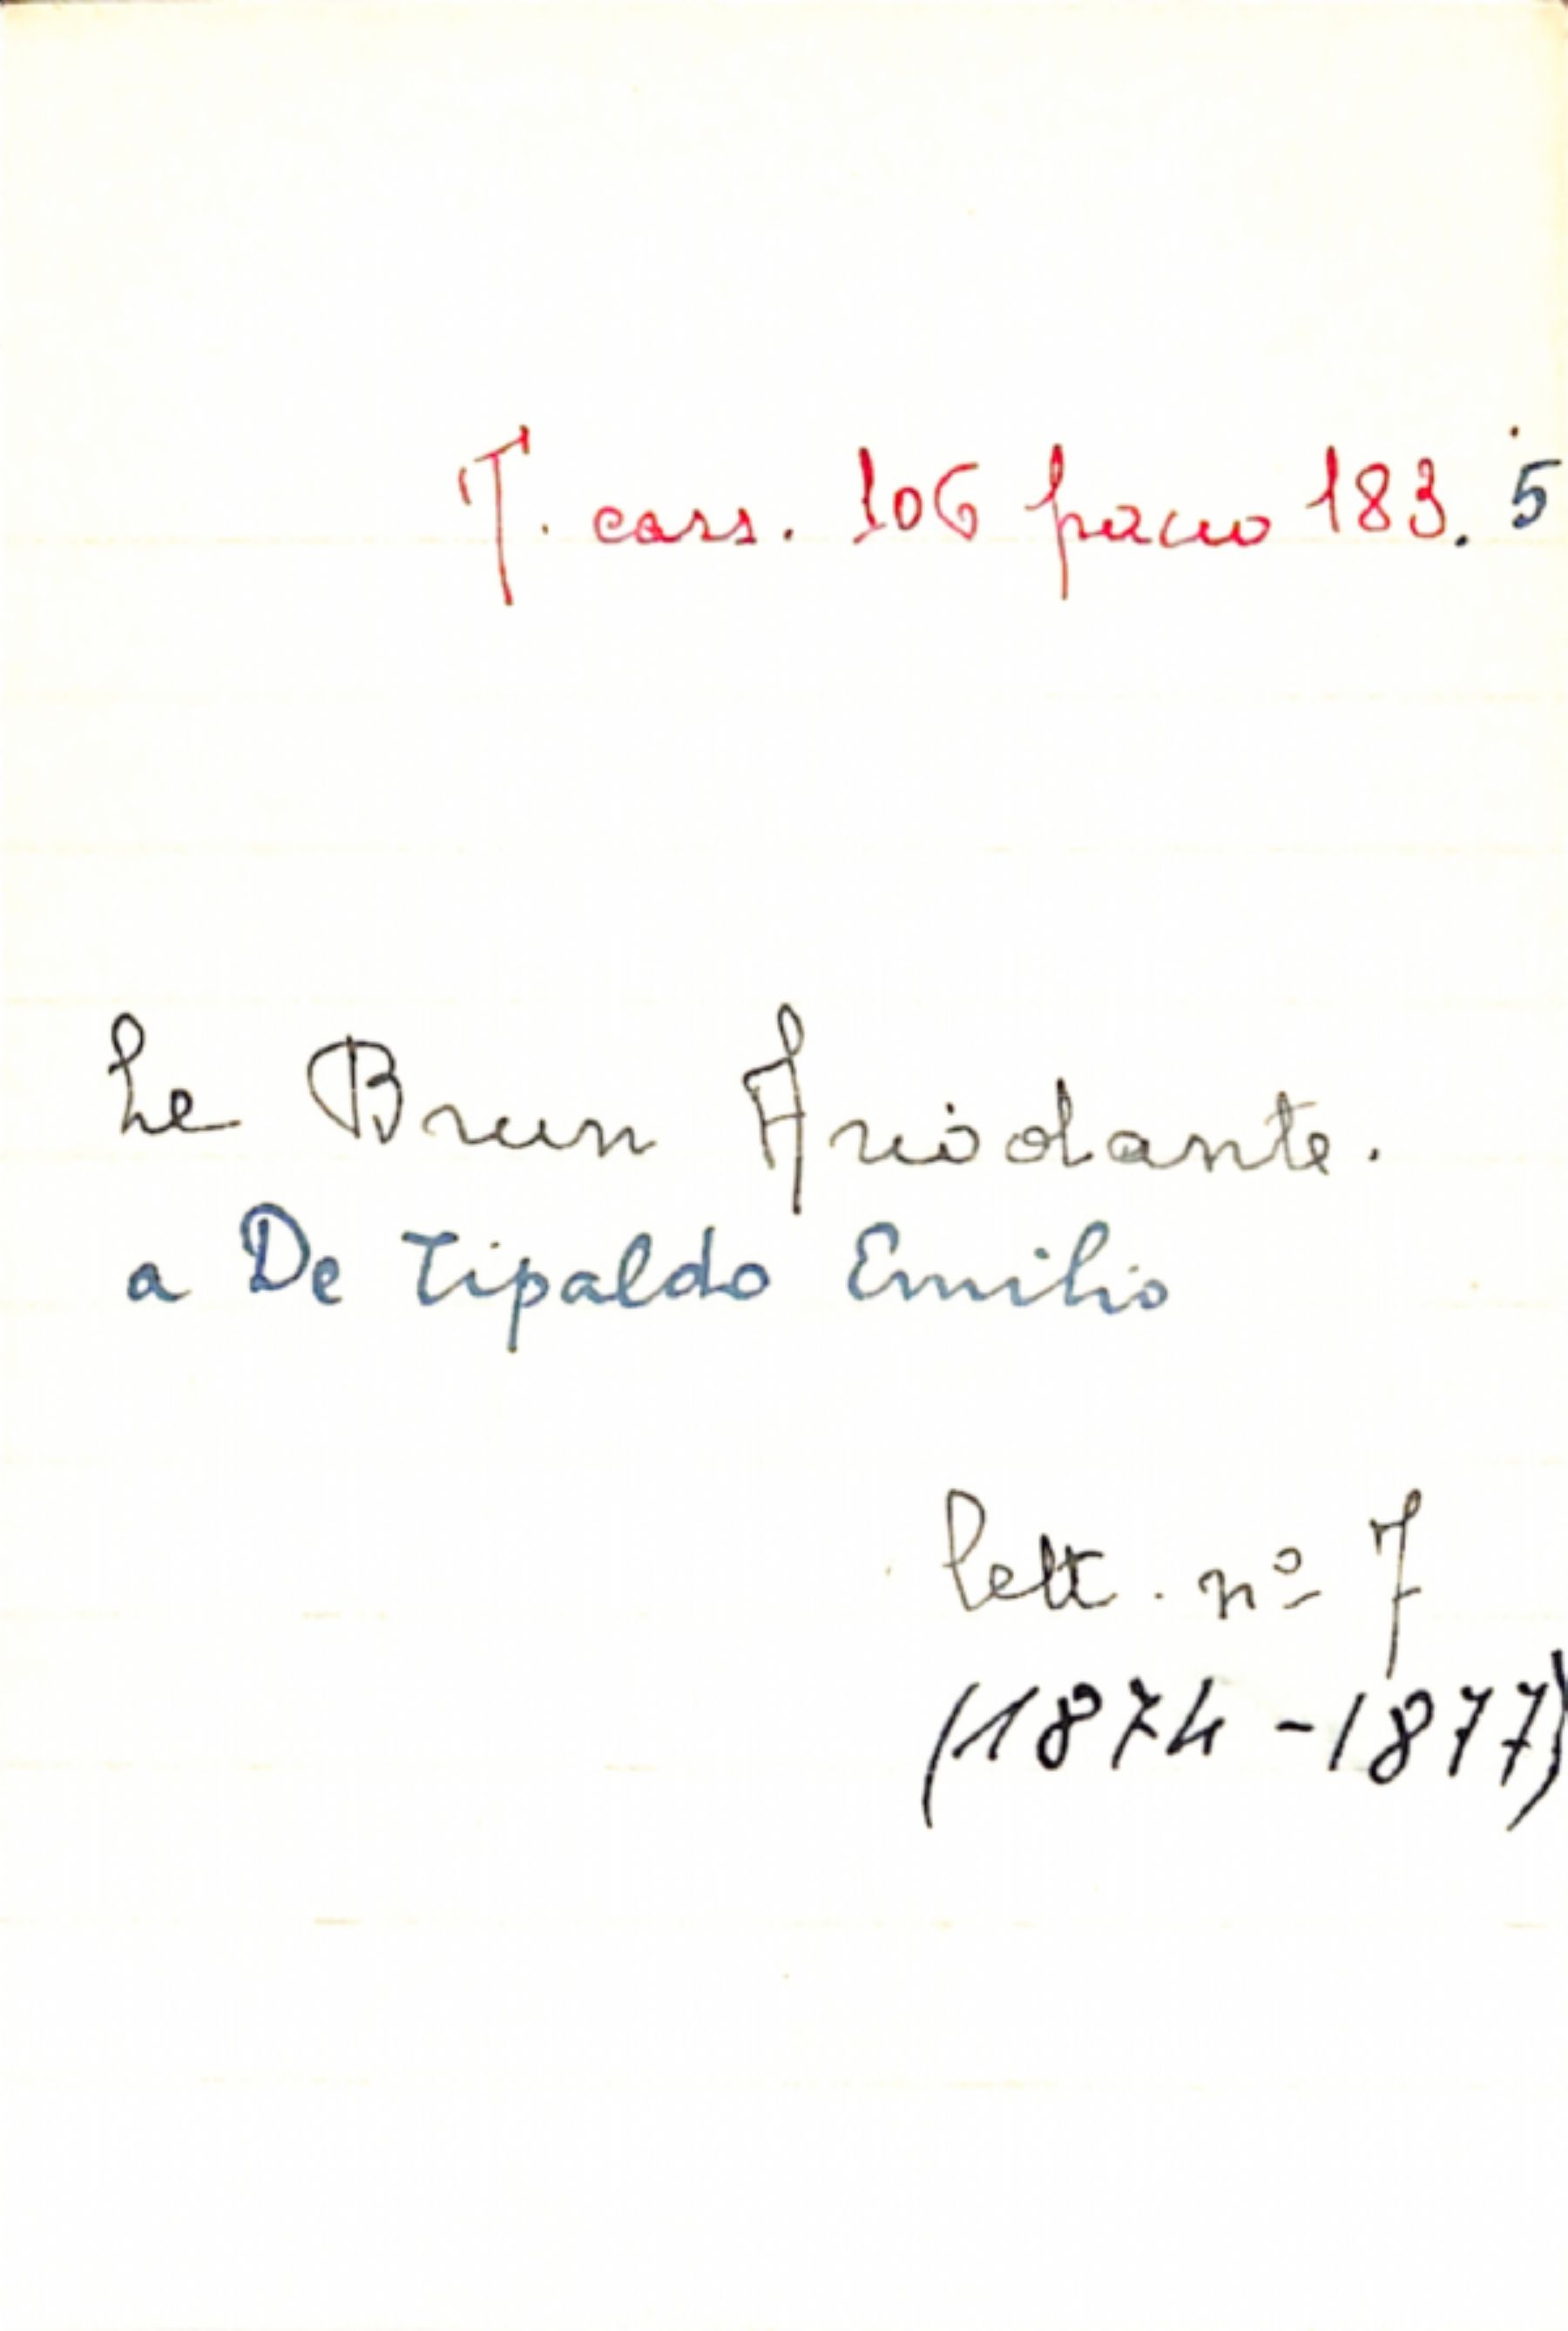 T. cass. 106 pacco 183. 5
Le Brun Ariodante.
a De Tipaldo Emilio
lett. nº 7
(1874-1877)